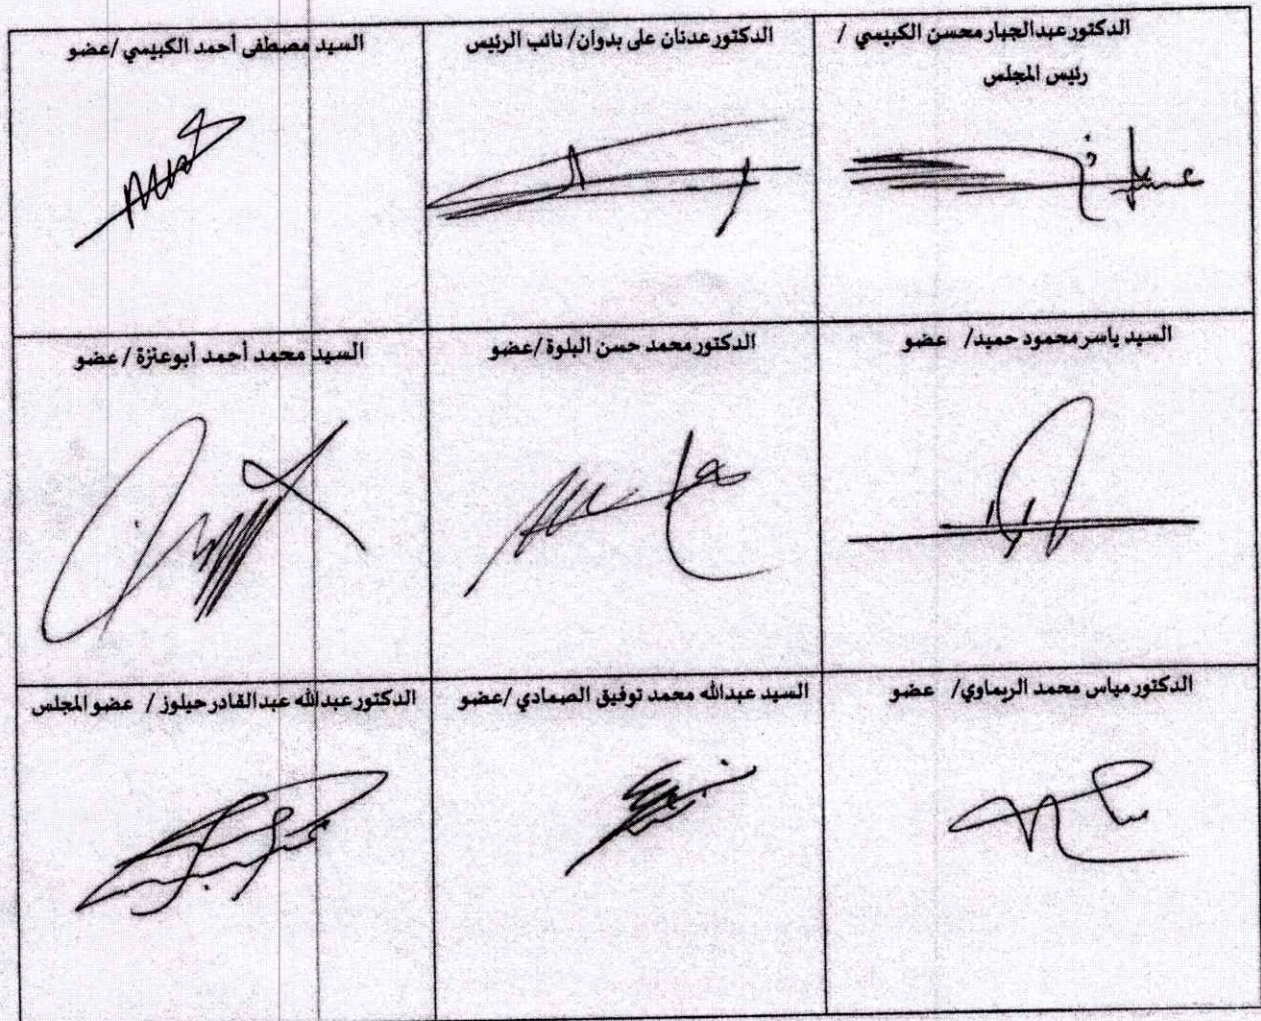 الدكتور عبدالجبار محسن الكبيسي /
رئيس المجلس
الدكتور عدنان على بدوان/ نائب الرئيس
السيد مصطفى أحمد الكبيسي /عضو
السيد ياسر محمود حميد/ عضو
الدكتور محمد حسن البلوة /عضو
السيد محمد أحمد أبوعنزة / عضو
الدكتور مياس محمد الريماوي/ عضو
السيد عبدالله محمد توفيق الصمادي /عضو
الدكتور عبدالله عبدالقادر حيلوز / عضو المجلس